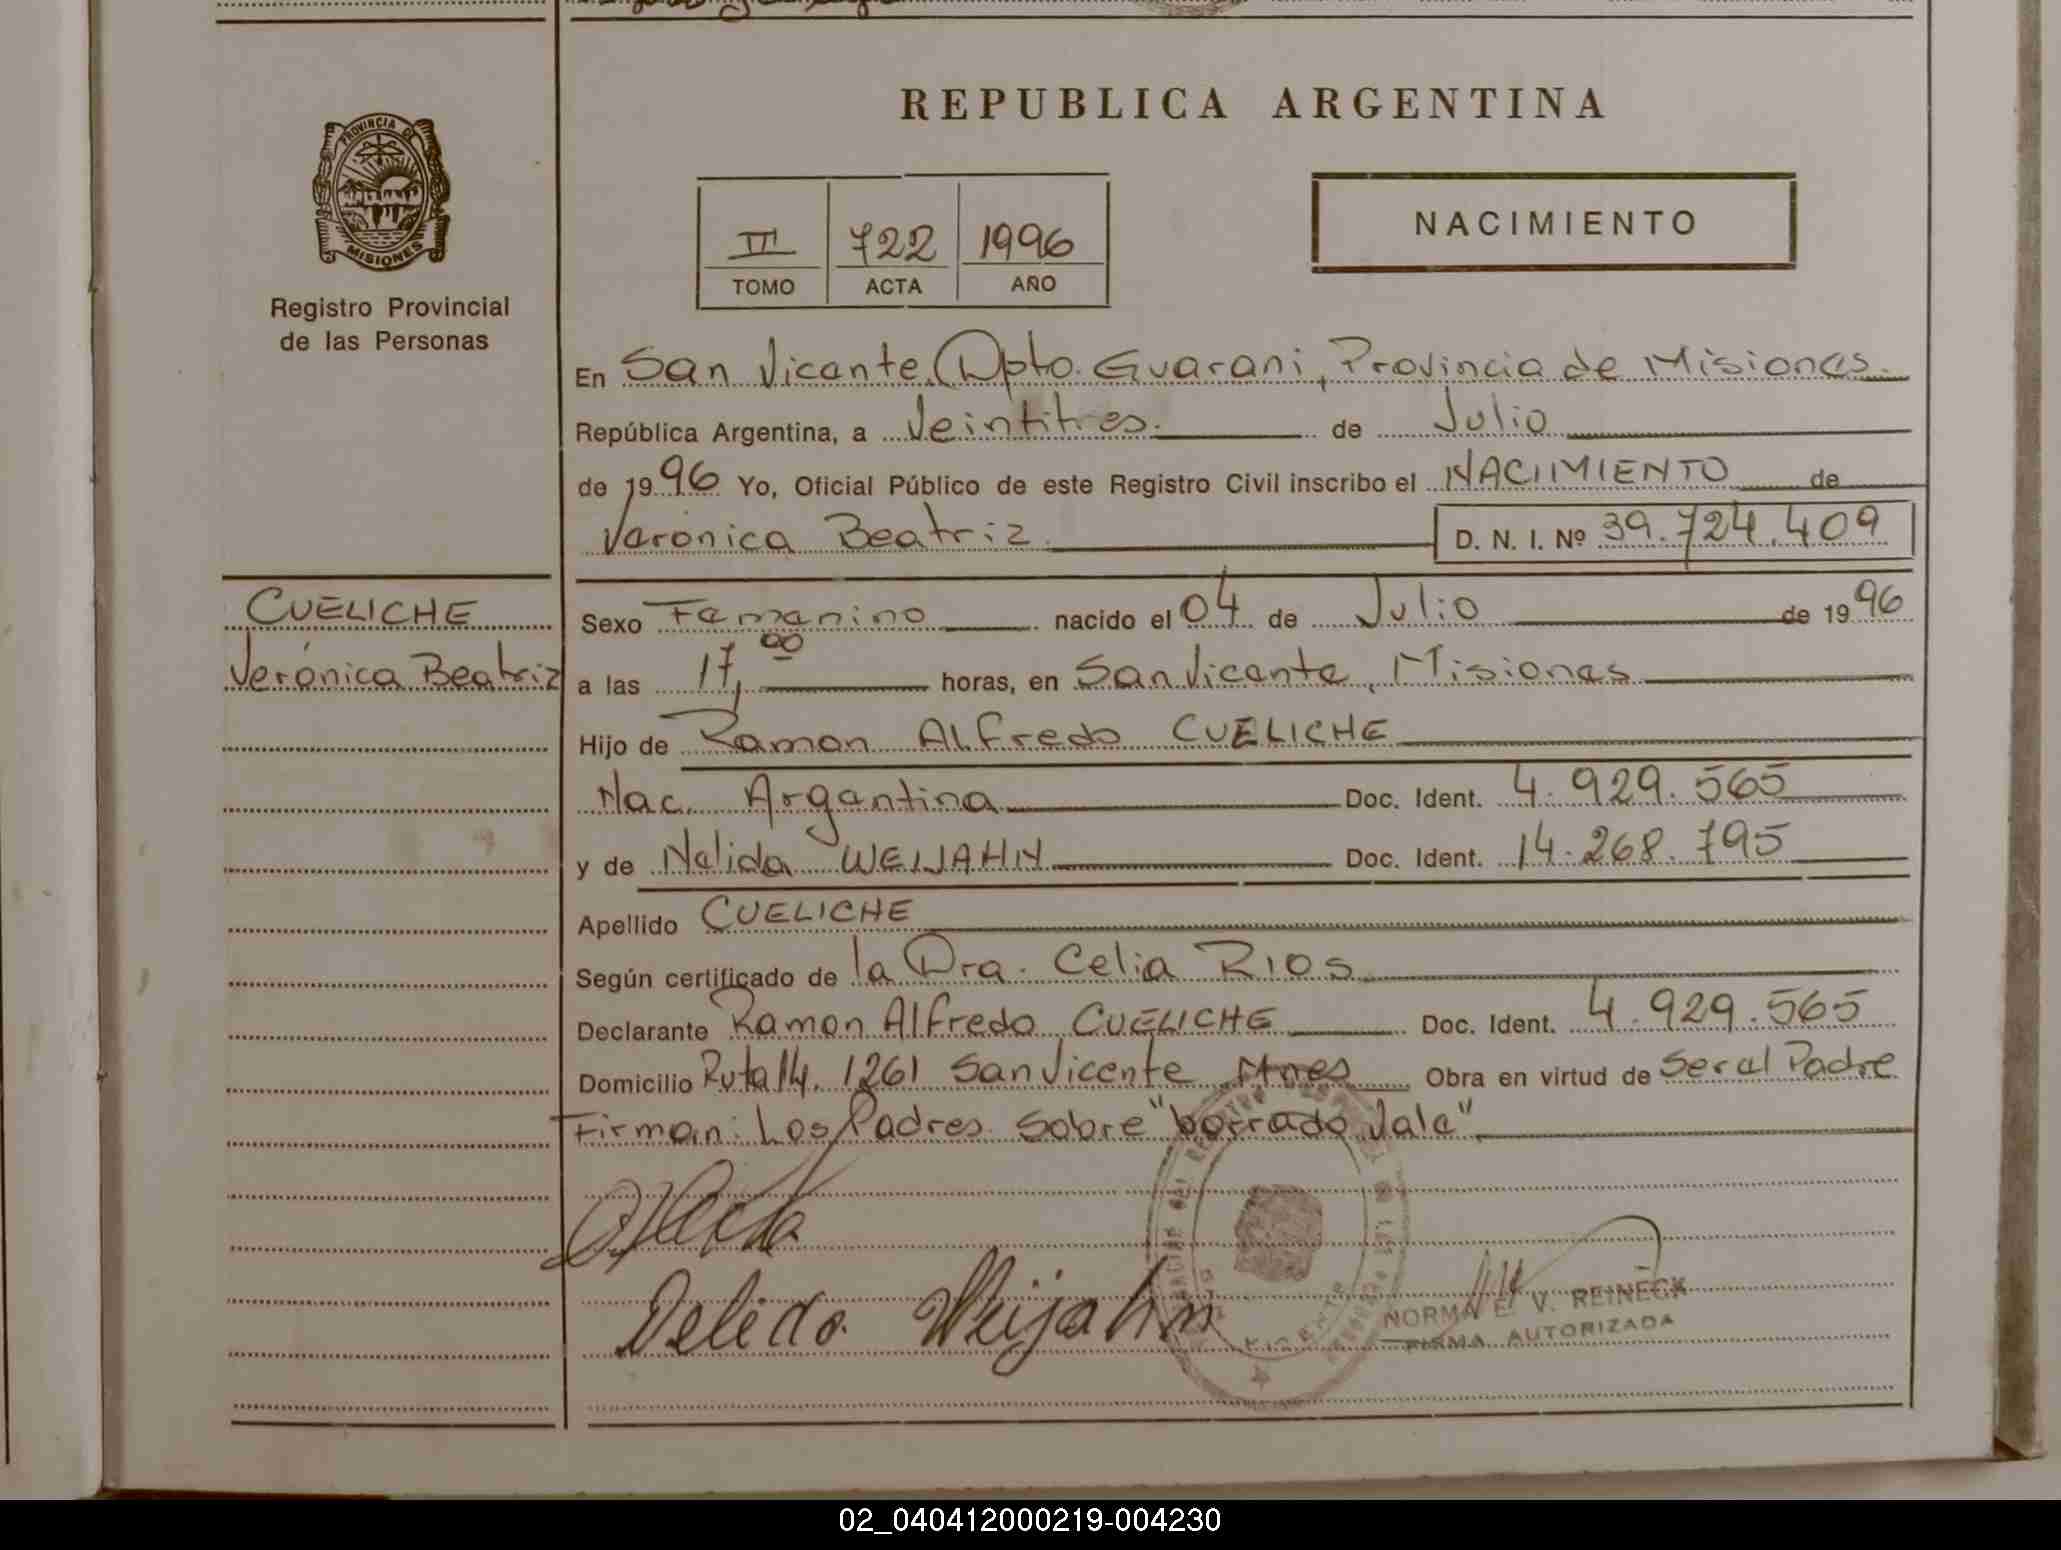 REPUBLICA ARGENTINA
PROVINCIA DE
MISIONES
Registro Provincial
de las Personas
III 722 1996
TOMO ACTA AÑO
NACIMIENTO
En San Vicente, Dpto. Guarani, Provincia de Misiones.
República Argentina, a Veintitres. de Julio
de 1996 Yo, Oficial Público de este Registro Civil inscribo el NACIMIENTO de
Verónica Beatriz D. N. I. Nº 39.724.409
CUELICHE
Verónica Beatriz
Sexo Femenino nacido el 04 de Julio de 1996
a las 17,00 horas, en San Vicente, Misiones
Hijo de Ramon Alfredo CUELICHE
Nac. Argentina Doc. Ident. 4.929.565
y de Nelida WEIJAHN Doc. Ident. 14.268.795
Apellido CUELICHE
Según certificado de la Dra. Celia Rios
Declarante Ramon Alfredo CUELICHE Doc. Ident. 4.929.565
Domicilio Ruta 14. 1261 San Vicente Mnes Obra en virtud de Ser el Padre
Firman: Los Padres. Sobre "borrado Vale"
Nelida Weijahn
NORMA E. V. REINECK
FIRMA AUTORIZADA
02_040412000219-004230